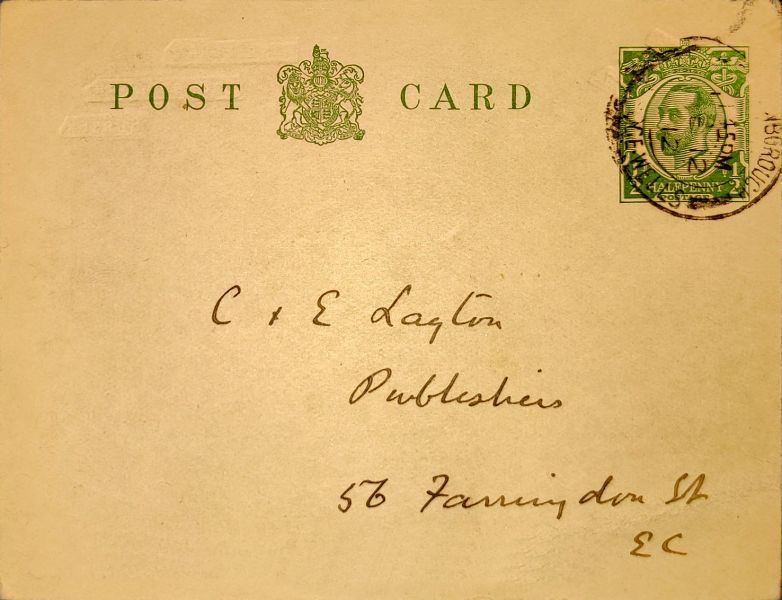 POST CARD
HALFPENNY
POSTAGE
C & E Layton
Publishers
56 Farringdon St
E C